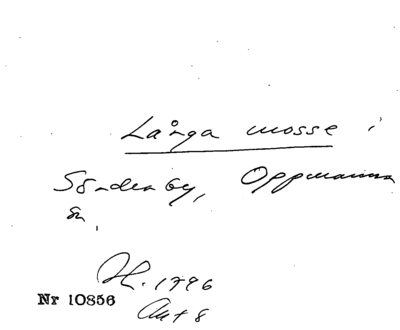 Långa mosse i
Sönderby, Oppmanna
sn.
H. 1796
Nr 10856
Akt 8